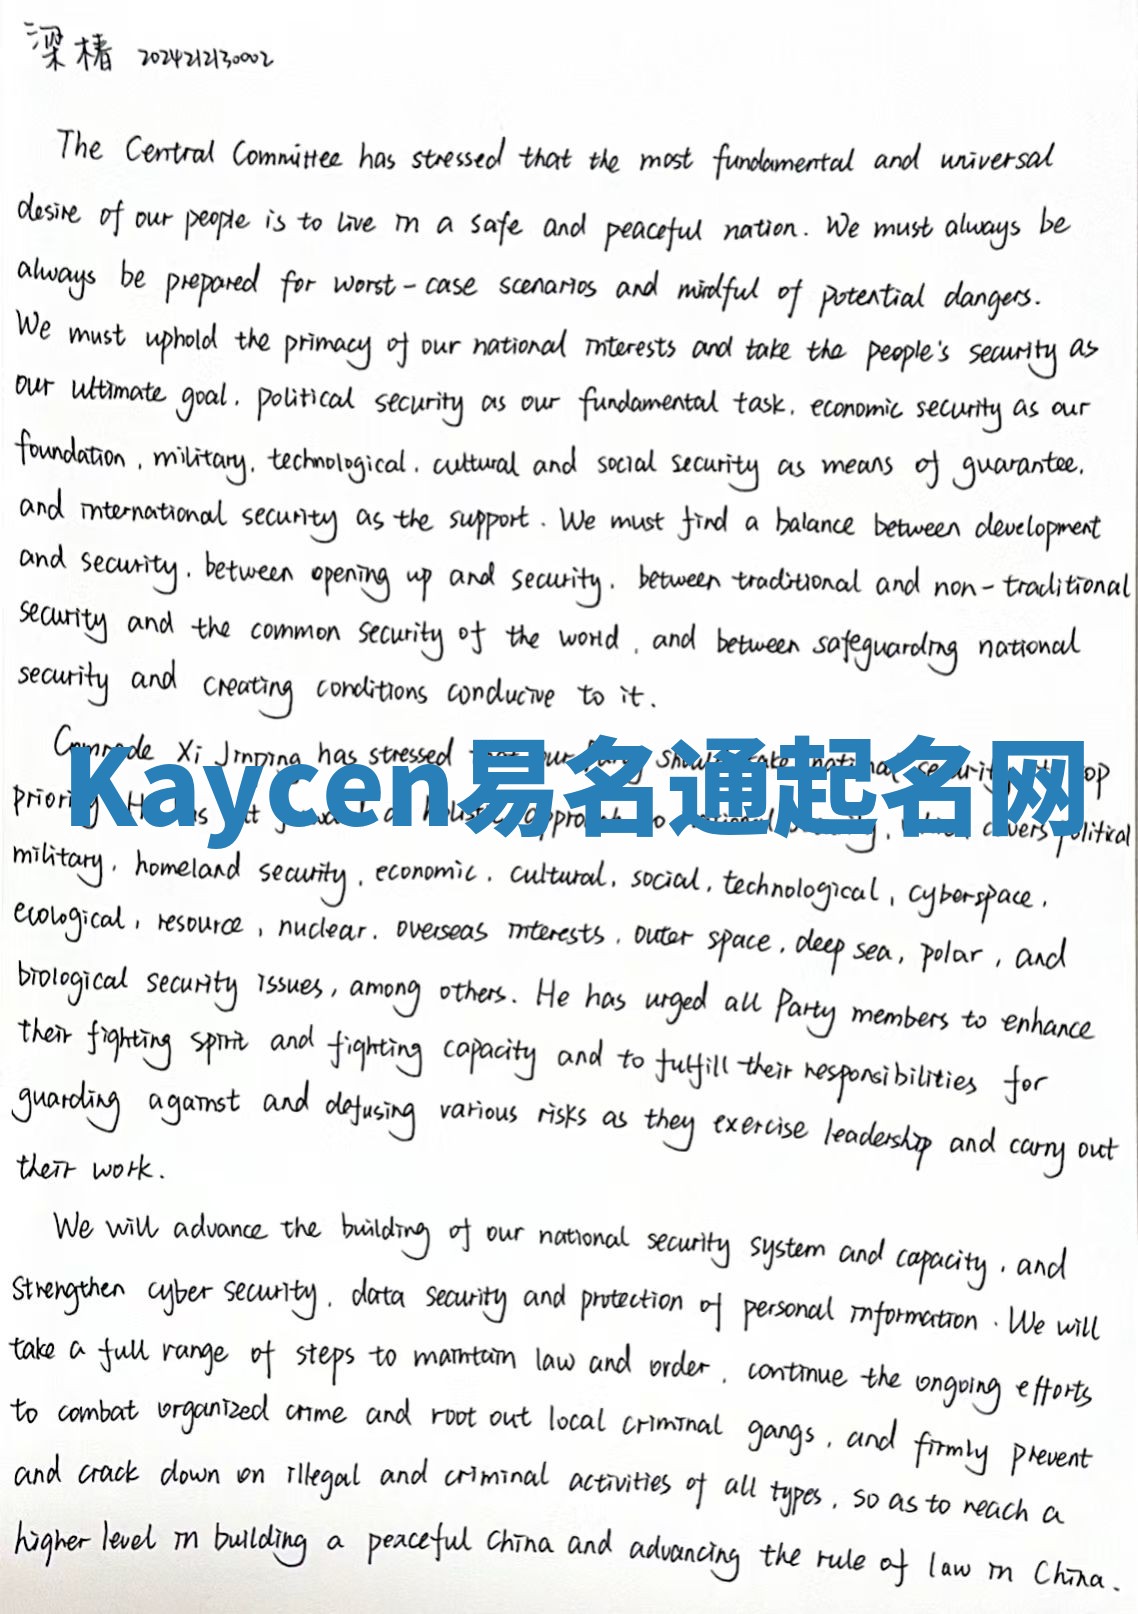 梁椿 2024212130002
The Central Committee has stressed that the most fundamental and universal
desire of our people is to live in a safe and peaceful nation. We must always be
always be prepared for worst-case scenarios and mindful of potential dangers.
We must uphold the primacy of our national interests and take the people's security as
our ultimate goal, political security as our fundamental task, economic security as our
foundation, military, technological, cultural and social security as means of guarantee,
and international security as the support. We must find a balance between development
and security, between opening up and security, between traditional and non-traditional
security and the common security of the world, and between safeguarding national
security and creating conditions conducive to it.
Comrade Xi Jinping has stressed our
Kaycen易名通起名网
priority political
military, homeland security, economic, cultural, social, technological, cyberspace,
ecological, resource, nuclear, overseas interests, outer space, deep sea, polar, and
biological security issues, among others. He has urged all Party members to enhance
their fighting spirit and fighting capacity and to fulfill their responsibilities for
guarding against and defusing various risks as they exercise leadership and carry out
their work.
We will advance the building of our national security system and capacity, and
strengthen cyber security, data security and protection of personal information. We will
take a full range of steps to maintain law and order, continue the ongoing efforts
to combat organized crime and root out local criminal gangs, and firmly prevent
and crack down on illegal and criminal activities of all types, so as to reach a
higher level in building a peaceful China and advancing the rule of law in China.